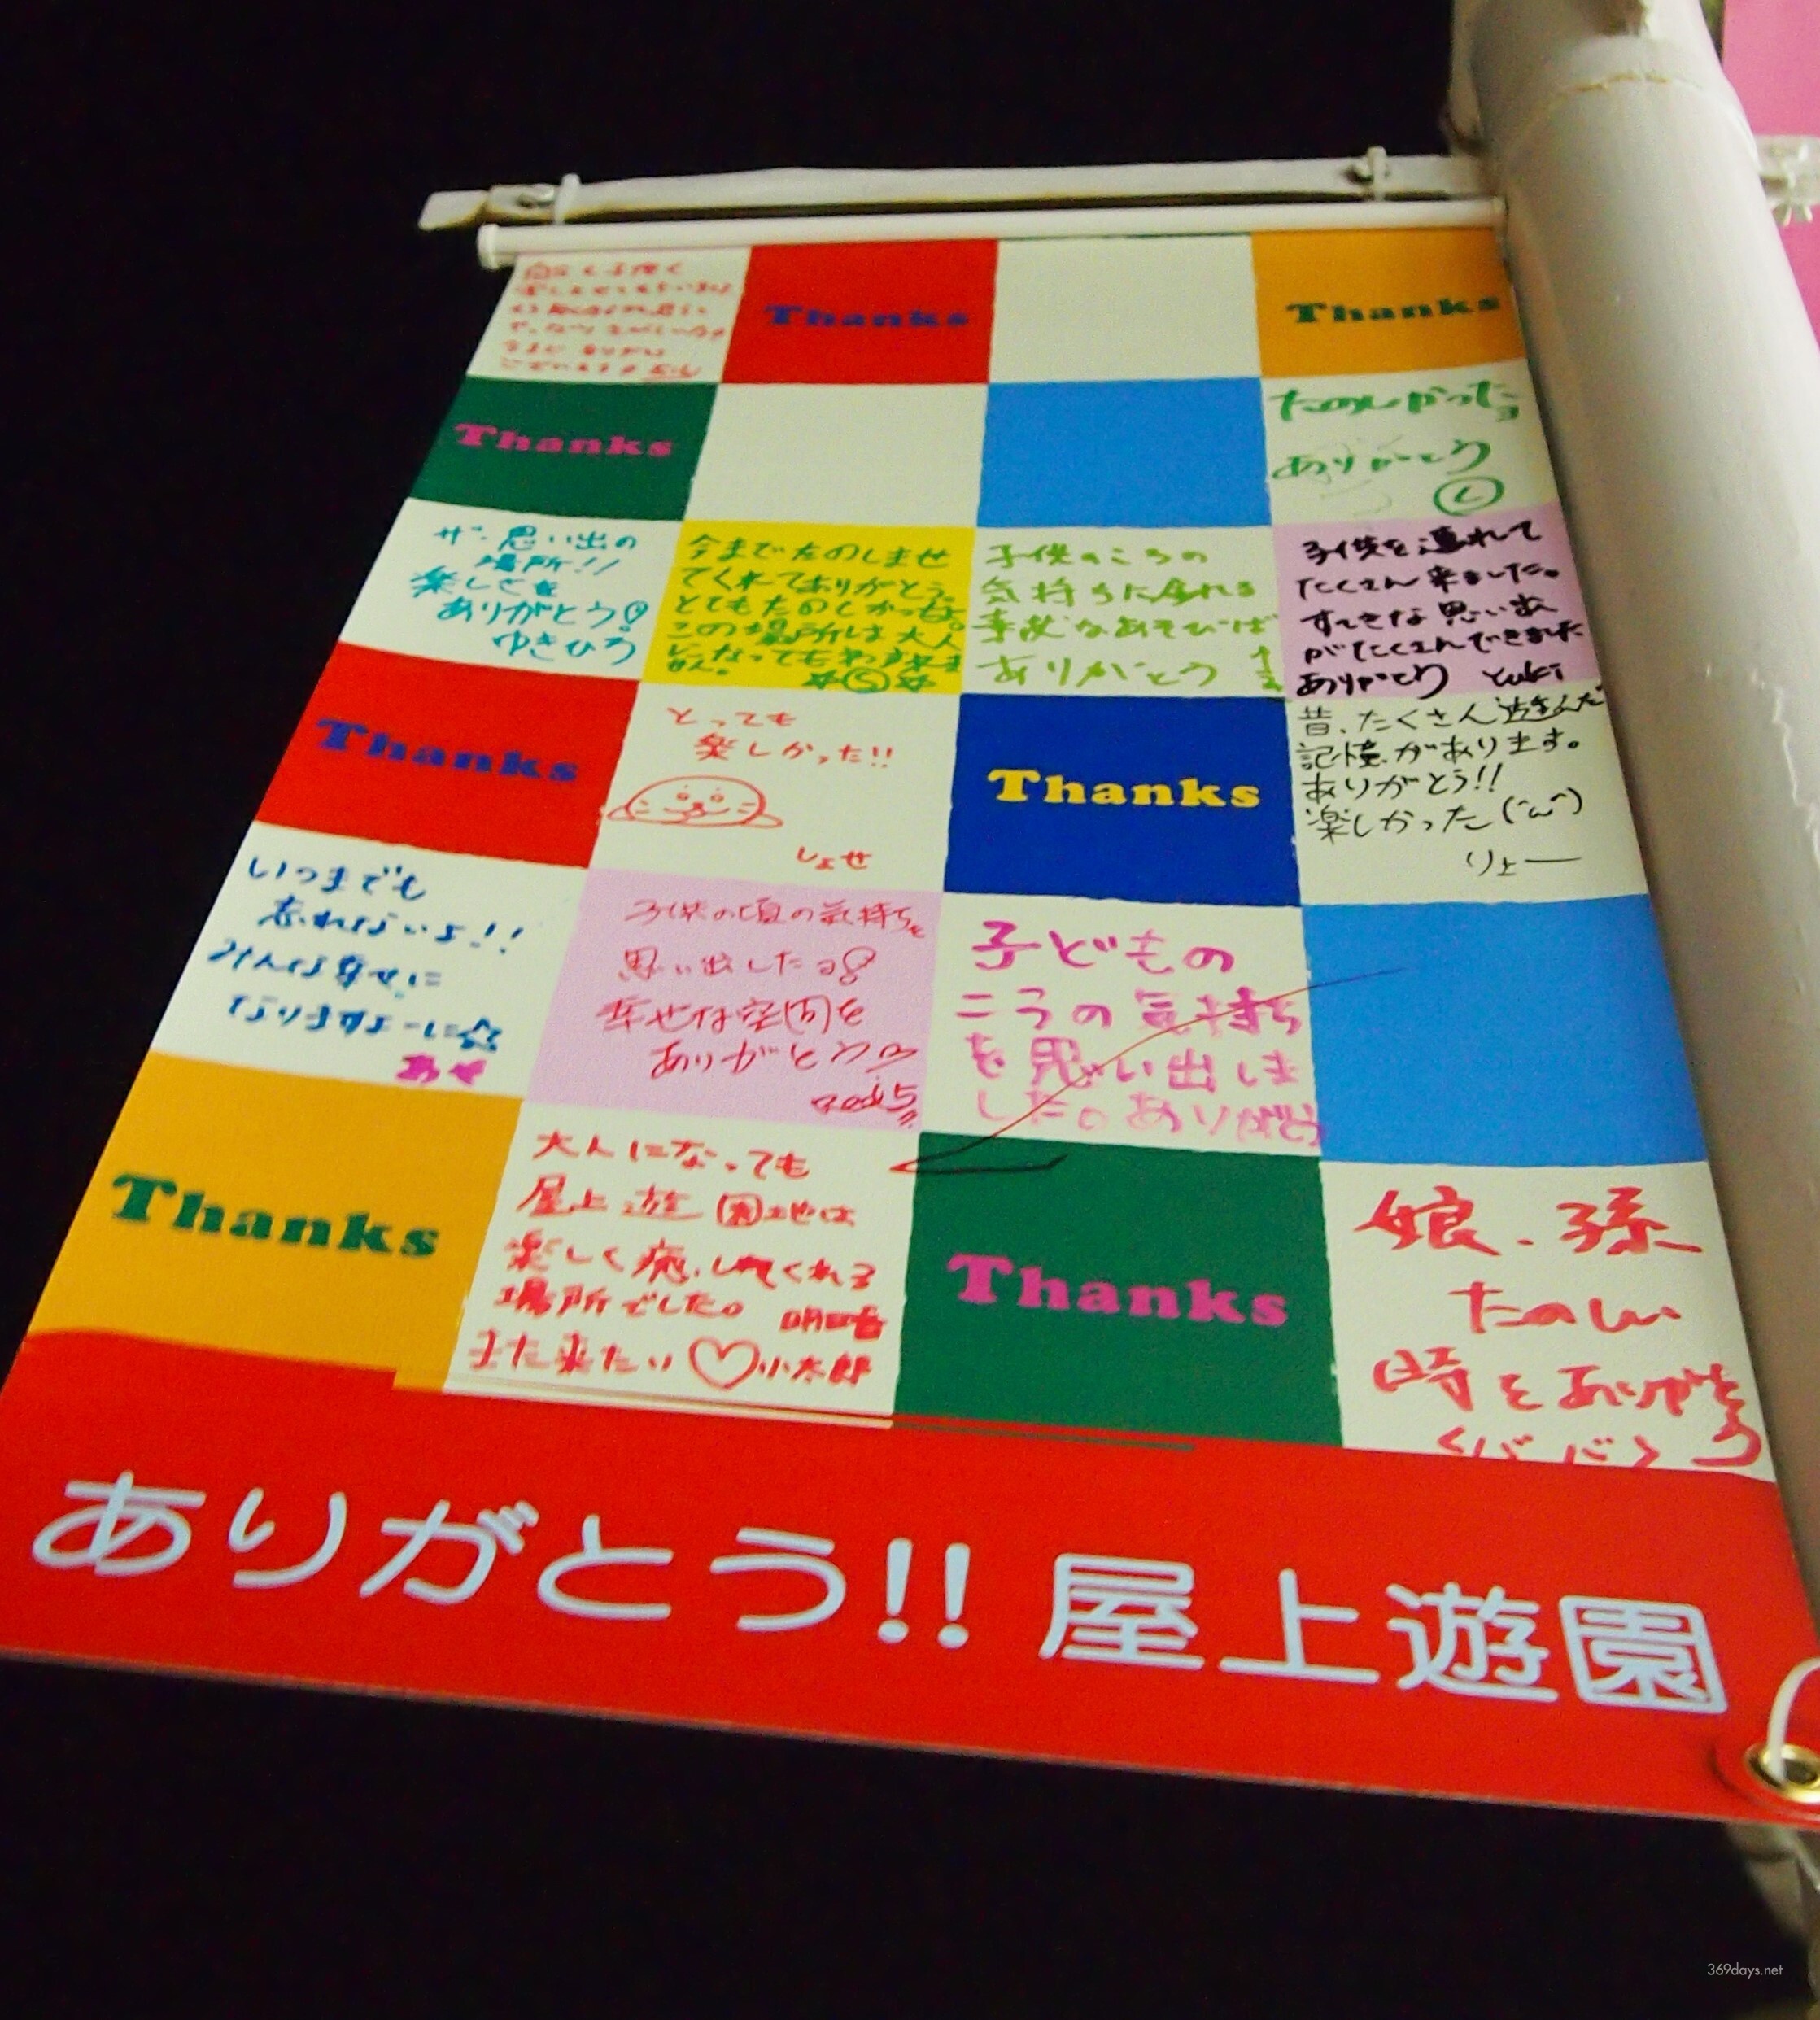 Thanks
Thanks
Thanks
たのしかったヨ
ありがとう
し
ザ・思い出の
場所!!
楽しさを
ありがとう
ゆきひろ
今までたのしませ
てくれてありがとう。
とてもたのしかったよ。
この場所は大人
になってもわすれま
せん。
S
子供のころの
気持ちに
なあそびば
ありがとう
子供を連れて
たくさん来ました。
すてきな思い出
がたくさんできました
ありがとう Yuki
Thanks
とっても
楽しかった!!
しょせ
Thanks
昔、たくさん遊んだ
記憶があります。
ありがとう!!
楽しかった(^ω^)
りょー
いつまでも
忘れないよ!!
みんな幸せに
なりますよーに☆
子供の頃の気持ちを
思い出したョ
幸せな空間を
ありがとう
子どもの
ころの気持ち
を思い出しま
した。ありがとう
Thanks
大人になっても
屋上遊園地は
楽しく癒してくれる
場所でした。
また来たい♡小太郎
Thanks
娘、孫
たのしい
時をありがとう
ありがとう!! 屋上遊園
369days.net